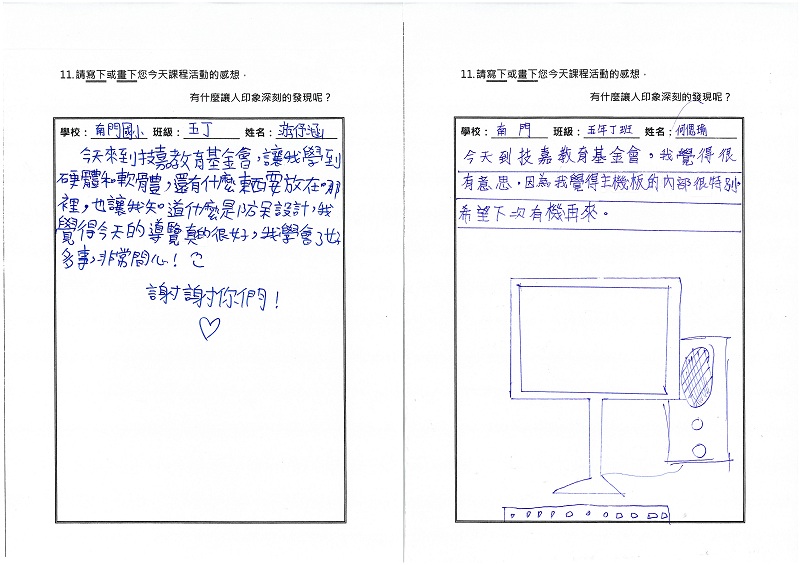 11.請寫下或畫下您今天課程活動的感想。
有什麼讓人印象深刻的發現呢？
學校： 南門國小 班級： 五丁 姓名： 游伃涵
今天來到技嘉教育基金會，讓我學到
硬體和軟體，還有什麼東西要放在哪
裡，也讓我知道什麼是防呆設計，我
覺得今天的導覽真的很好，我學會了好
多事，非常開心！
謝謝你們！
11.請寫下或畫下您今天課程活動的感想。
有什麼讓人印象深刻的發現呢？
學校： 南門 班級： 五年丁班 姓名： 何偲瑀
今天到技嘉教育基金會，我覺得很
有意思，因為我覺得主機板的內部很特別。
希望下次有機再來。